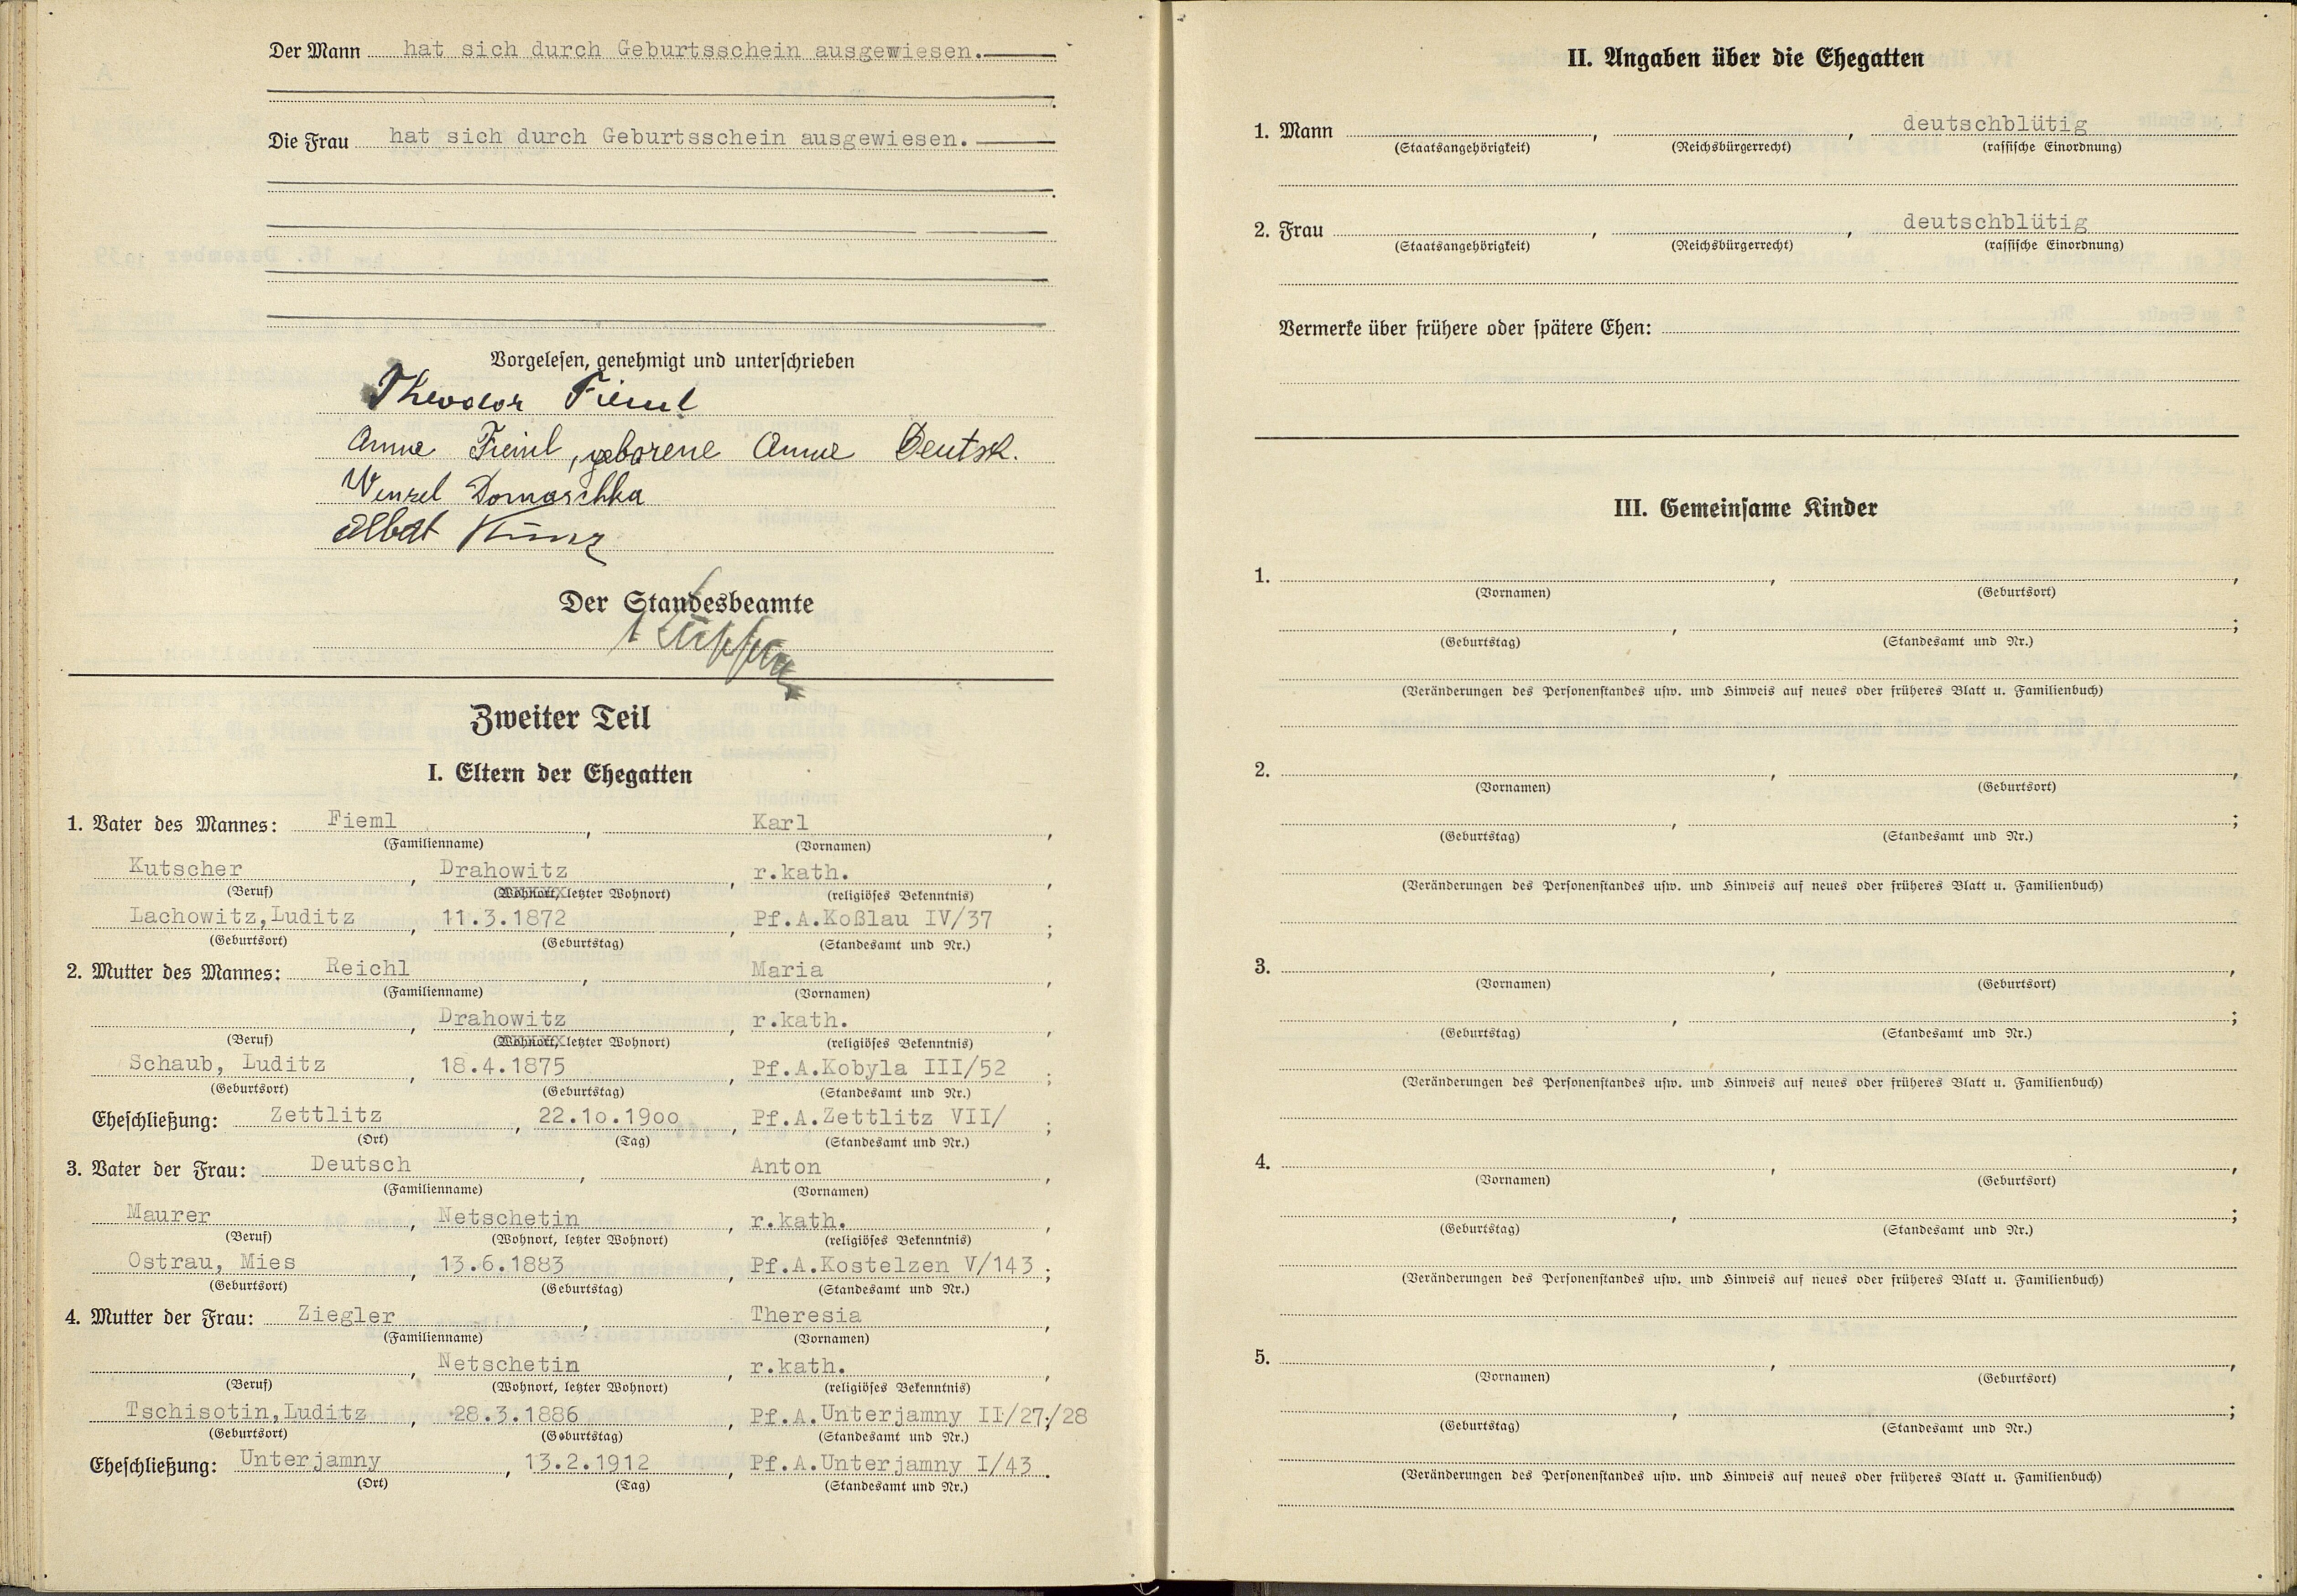 Der Mann hat sich durch Geburtsschein ausgewiesen.
Die Frau hat sich durch Geburtsschein ausgewiesen.
Vorgelesen, genehmigt und unterschrieben
Theodor Fieml
Anna Fieml, geborene Anna Deutsch.
Wenzel Domaschka
Albert Kunz
Der Standesbeamte
Zweiter Teil
I. Eltern der Ehegatten
1. Vater des Mannes: Fieml, Karl,
(Familienname) (Vornamen)
Kutscher, Drahowitz, r.kath.,
(Beruf) (Wohnort, letzter Wohnort) (religiöses Bekenntnis)
Lachowitz,Luditz, 11.3.1872, Pf.A.Koßlau IV/37;
(Geburtsort) (Geburtstag) (Standesamt und Nr.)
2. Mutter des Mannes: Reichl, Maria,
(Familienname) (Vornamen)
, Drahowitz, r.kath.,
(Beruf) (Wohnort, letzter Wohnort) (religiöses Bekenntnis)
Schaub, Luditz, 18.4.1875, Pf.A.Kobyla III/52;
(Geburtsort) (Geburtstag) (Standesamt und Nr.)
Eheschließung: Zettlitz, 22.1o.19oo, Pf.A.Zettlitz VII/;
(Ort) (Tag) (Standesamt und Nr.)
3. Vater der Frau: Deutsch, Anton,
(Familienname) (Vornamen)
Maurer, Netschetin, r.kath.,
(Beruf) (Wohnort, letzter Wohnort) (religiöses Bekenntnis)
Ostrau, Mies, 13.6.1883, Pf.A.Kostelzen V/143;
(Geburtsort) (Geburtstag) (Standesamt und Nr.)
4. Mutter der Frau: Ziegler, Theresia,
(Familienname) (Vornamen)
, Netschetin, r.kath.,
(Beruf) (Wohnort, letzter Wohnort) (religiöses Bekenntnis)
Tschisotin,Luditz, 28.3.1886, Pf.A.Unterjamny II/27;/28
(Geburtsort) (Geburtstag) (Standesamt und Nr.)
Eheschließung: Unterjamny, 13.2.1912, Pf.A.Unterjamny I/43.
(Ort) (Tag) (Standesamt und Nr.)
II. Angaben über die Ehegatten
1. Mann , , deutschblütig
(Staatsangehörigkeit) (Reichsbürgerrecht) (rassische Einordnung)
2. Frau , , deutschblütig
(Staatsangehörigkeit) (Reichsbürgerrecht) (rassische Einordnung)
Vermerke über frühere oder spätere Ehen:
III. Gemeinsame Kinder
1. , ,
(Vornamen) (Geburtsort)
, ;
(Geburtstag) (Standesamt und Nr.)
(Veränderungen des Personenstandes usw. und Hinweis auf neues oder früheres Blatt u. Familienbuch)
2. , ,
(Vornamen) (Geburtsort)
, ;
(Geburtstag) (Standesamt und Nr.)
(Veränderungen des Personenstandes usw. und Hinweis auf neues oder früheres Blatt u. Familienbuch)
3. , ,
(Vornamen) (Geburtsort)
, ;
(Geburtstag) (Standesamt und Nr.)
(Veränderungen des Personenstandes usw. und Hinweis auf neues oder früheres Blatt u. Familienbuch)
4. , ,
(Vornamen) (Geburtsort)
, ;
(Geburtstag) (Standesamt und Nr.)
(Veränderungen des Personenstandes usw. und Hinweis auf neues oder früheres Blatt u. Familienbuch)
5. , ,
(Vornamen) (Geburtsort)
, ;
(Geburtstag) (Standesamt und Nr.)
(Veränderungen des Personenstandes usw. und Hinweis auf neues oder früheres Blatt u. Familienbuch)